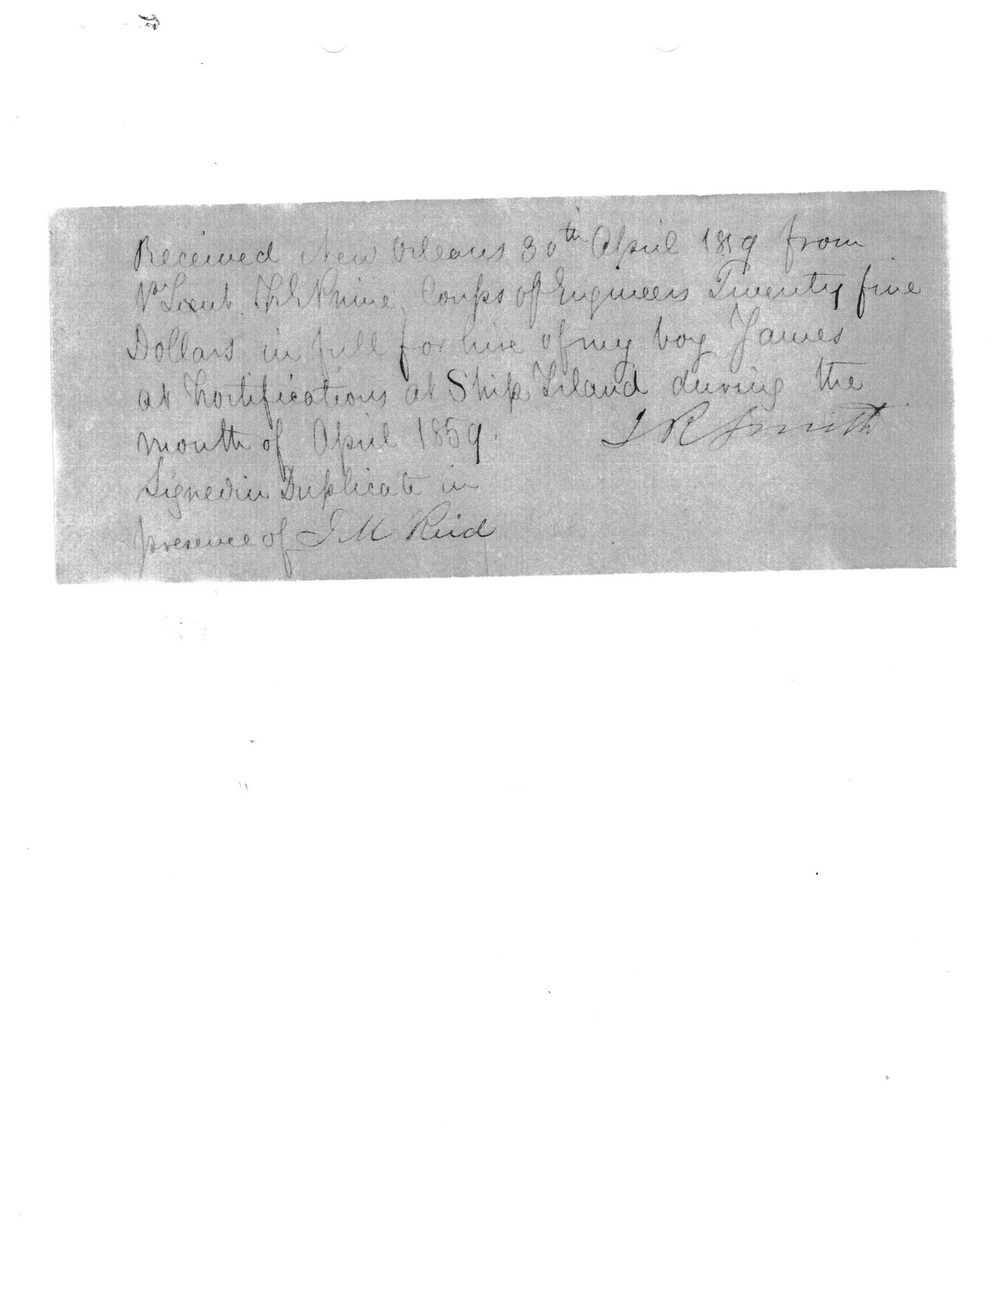 Received New Orleans 30th April 1859 from
1st Lieut. F. E. Prime, Corps of Engineers Twenty five
Dollars in full for hire of my boy James
at Fortifications at Ship Island during the
month of April 1859. J R Smith
Signed in Duplicate in
presence of J M Reid